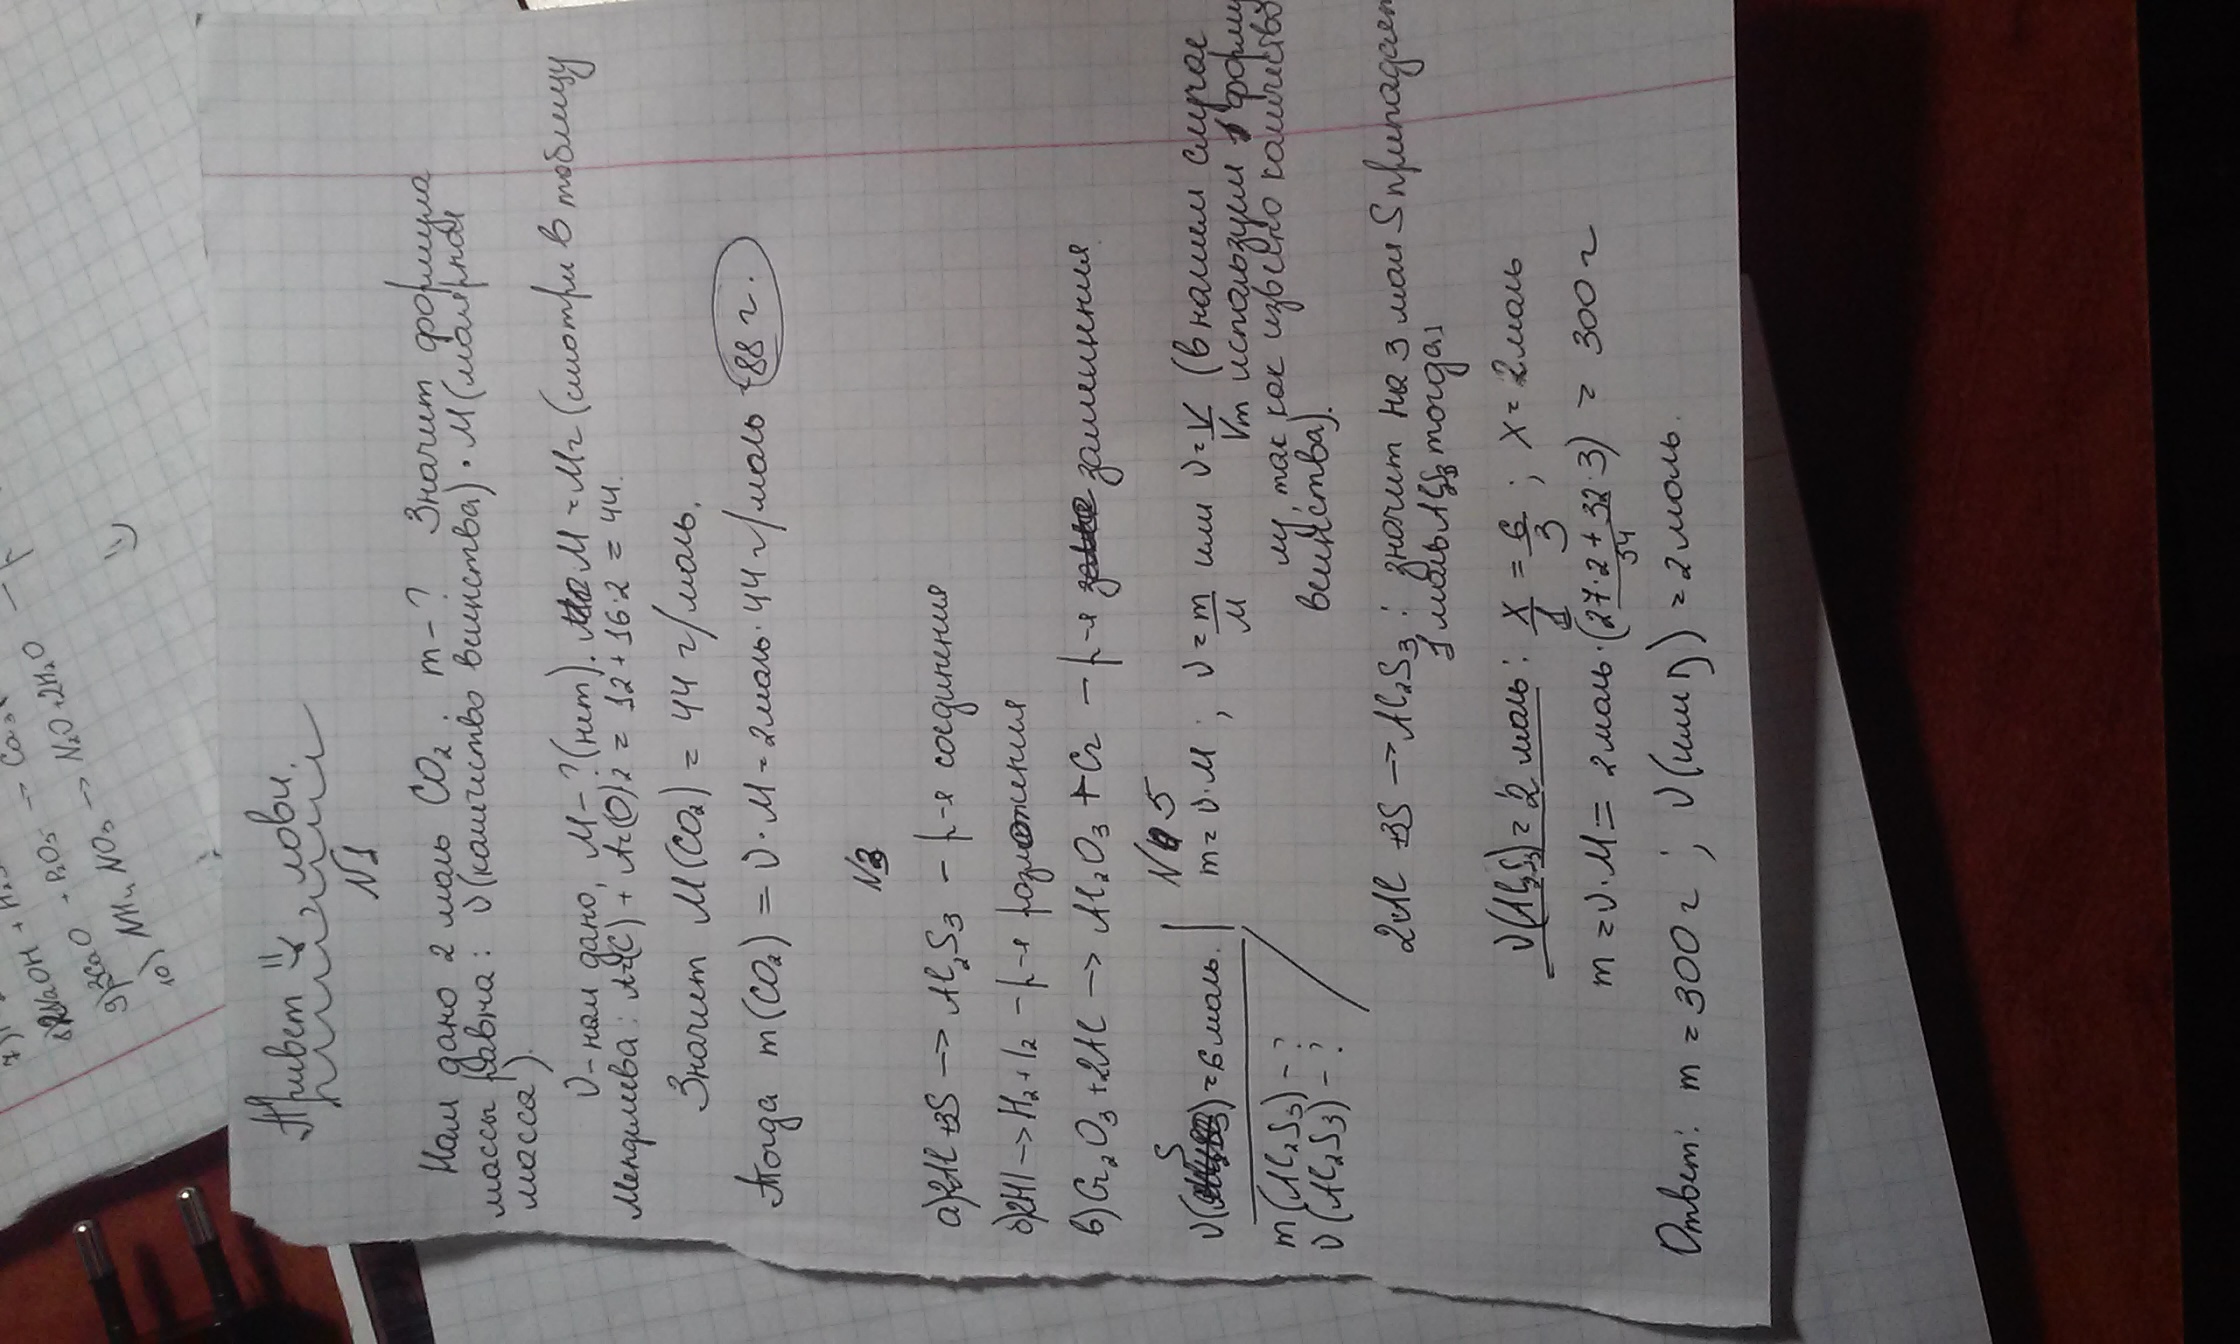 Привет лови.
N1
Нам дано 2 моль CO₂. m-? Значит формула
массы равна: ν(количество вещества)·M(молярная
масса).
ν-нам дано, M-?(нет). M=Mr (смотри в таблицу
Менделеева: Ar(C)+Ar(O)·2=12+16·2=44.
Значит M(CO₂)=44 г/моль.
Тогда m(CO₂)=ν·M=2моль·44 г/моль=88 г.
N3
а)2Al+3S→Al₂S₃ - р-я соединения
б)2HI→H₂+I₂ - р-я разложения
в)Cr₂O₃+2Al→Al₂O₃+Cr - р-я замещения
N5
ν(S)=6 моль.
m(Al₂S₃)-?
ν(Al₂S₃)-?
m=ν·M; ν=m/M или ν=V/Vm (в нашем случае
используем формулу
му, так как известно количество
вещества).
2Al+3S→Al₂S₃; значит на 3 моля S припадает
1 моль Al₂S₃ тогда,
ν(Al₂S₃)=2 моль: x/1=6/3; x=2моль
m=ν·M=2моль·(27·2+32·3)=300г
54
Ответ: m=300г; ν()=2моль.
2NaOH +
9) CaO + P₂O₅ → Ca₃
10) NH₄NO₃ → N₂O+2H₂O